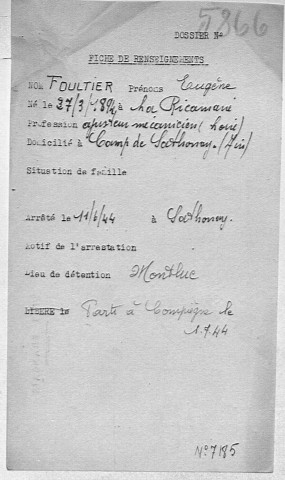 5866
DOSSIER N°
FICHE DE RENSEIGNEMENTS
NOM FOULTIER Prénoms Eugène
Né le 27/3/1894 à La Ricamarie
Profession ajusteur mécanicien
Domicilié à Camp de Sathonay (Ain)
Situation de famille
Arrêté le 11/6/44 à Sathonay.
Motif de l'arrestation
Lieu de détention Montluc
LIBERE le Parti à Compiègne le
1.7.44
N° 7185